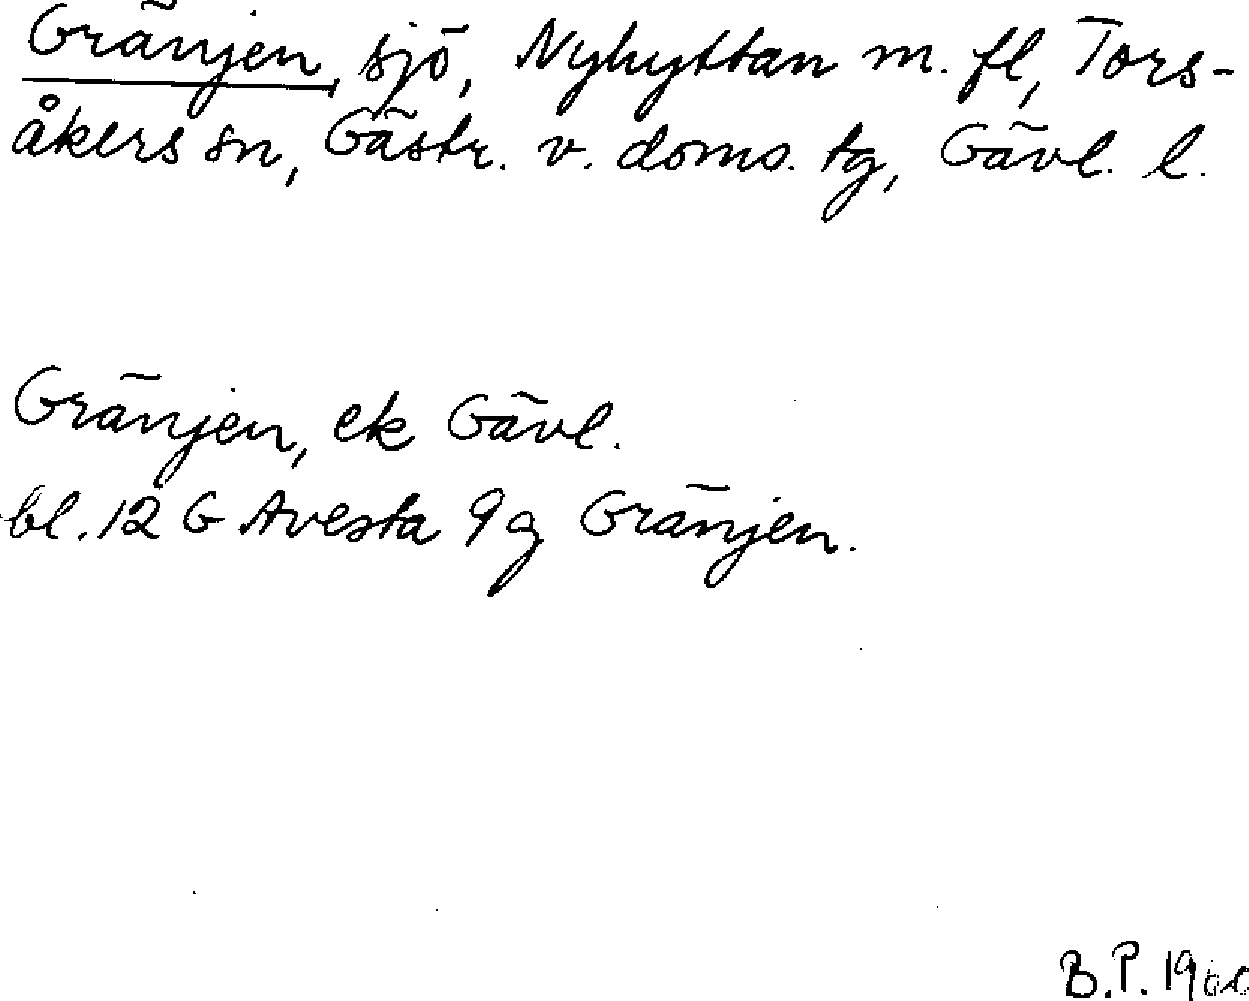 Gränjen, sjö, Nyhyttan m. fl, Tors-
åkers sn, Gästr. v. doms. tg, Gävl. l.
Gränjen, ek Gävl.
bl. 12 G Avesta 9 g Gränjen.
B.P.